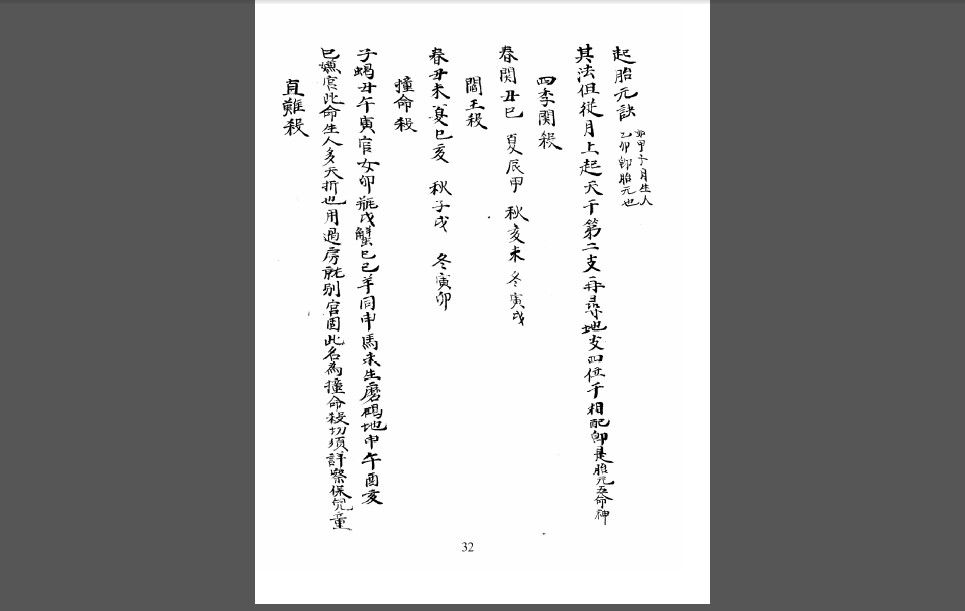 起胎元訣 如甲子月生人
乙卯卽胎元也
其法但從月上起天干第二支再尋地支四位干相配卽是胎元五命神
四季関殺
春関丑巳 夏辰甲 秋亥未 冬寅戌
閻王殺
春丑未 夏巳亥 秋子戌 冬寅卯
撞命殺
子蝎丑午寅官女卯瓶戌蟹巳巳羊同申馬未生磨碣地申午酉亥
巳嫌官此命生人多夭折也用過房就别宮因此名為撞命殺切須詳察保児童
直難殺
32